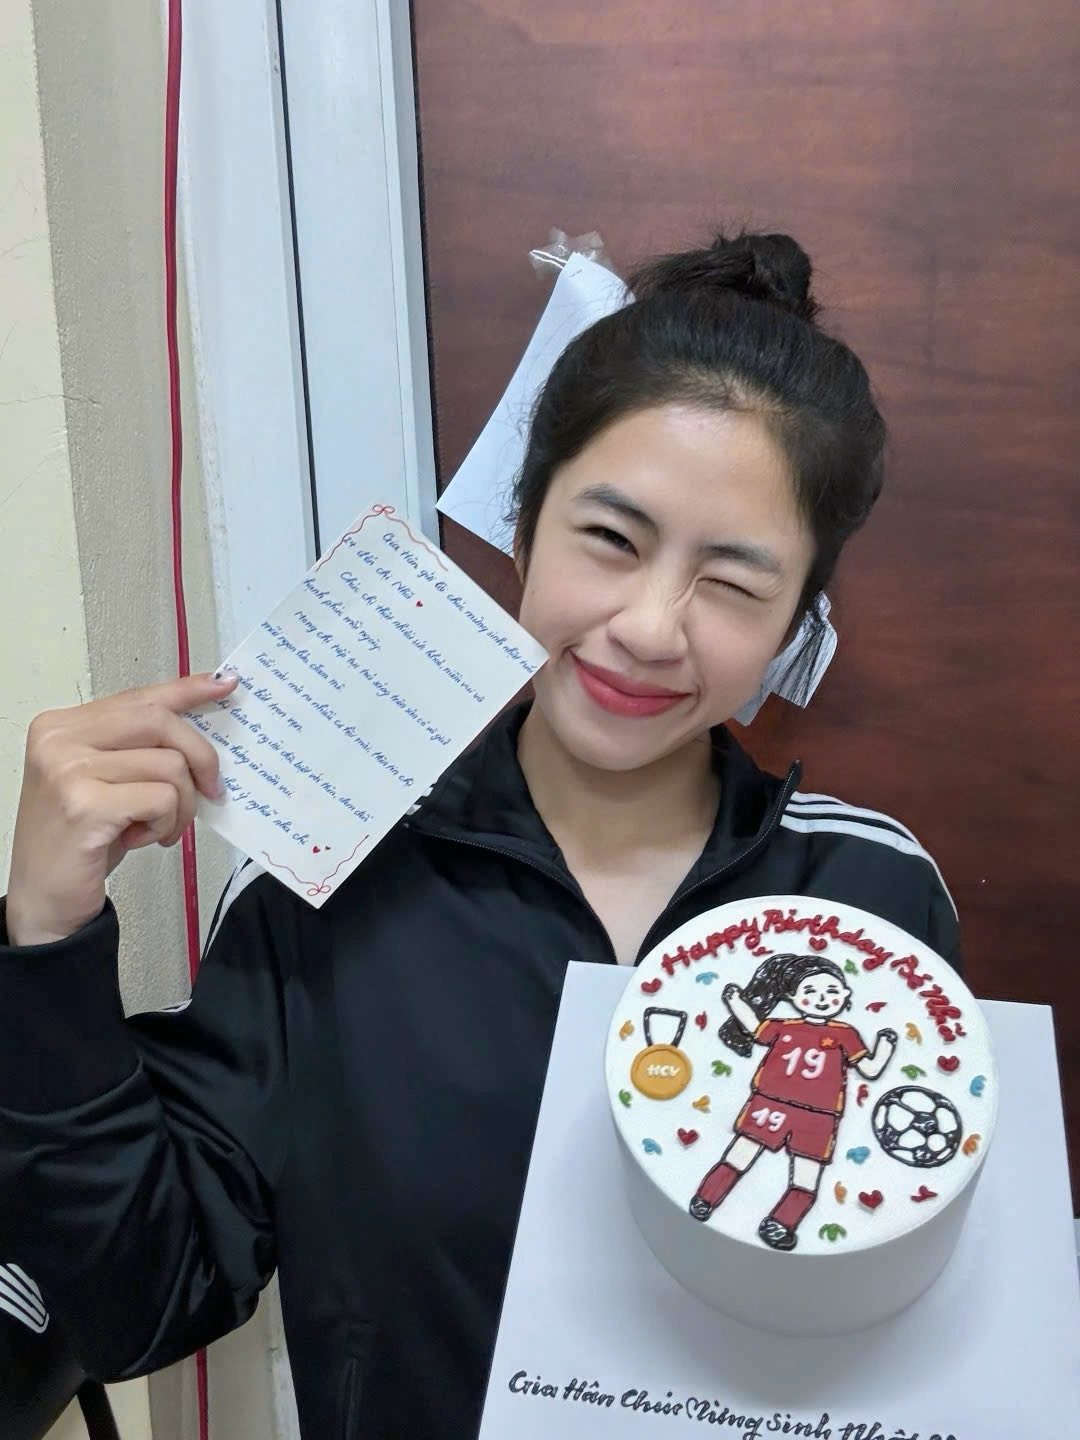 Gia Hân gửi lời chúc mừng sinh nhật tuổi
24 đến chị Nhã
Chúc chị thật nhiều sức khoẻ, niềm vui và
hạnh phúc mỗi ngày.
Mong chị tiếp tục toả sáng trên sân cỏ và giữ
mãi ngọn lửa đam mê.
Tuổi mới mở ra nhiều cơ hội mới, thêm tin chị
sẽ nắm bắt trọn vẹn.
chị luôn là người đặc biệt với tụi em, đem đến
nhiều cảm hứng và niềm vui.
thật ý nghĩa nha chị
Happy Birthday Bé Nhã
19
HCV
19
Gia Hân Chúc Mừng Sinh Nhật